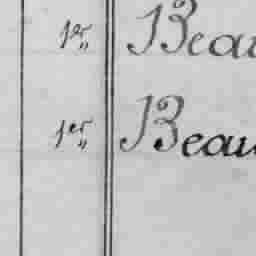 1er Beau
1er Beau